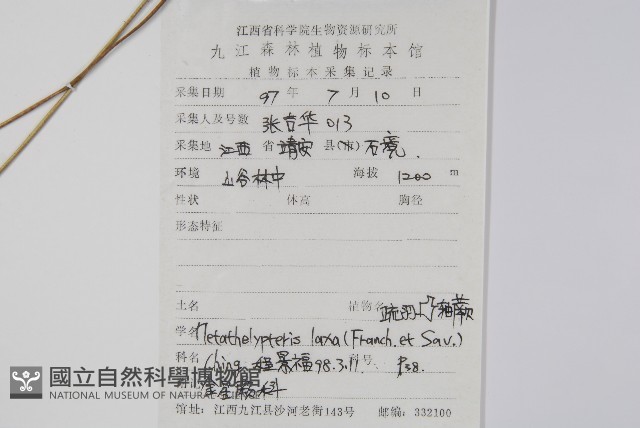 江西省科学院生物资源研究所
九江森林植物标本馆
植物标本采集记录
采集日期 97 年 7 月 10 日
采集人及号数 张吉华 013
采集地 江西 省 靖安 县(市) 石境.
环境 山谷林中 海拔 1200 m
性状 体高 胸径
形态特征
土名 植物名 疏羽凸轴蕨
学名 Metathelypteris laxa (Franch. et Sav.)
科名 Ching 程景福 98.3.11. 科号 P38.
金星蕨科
國立自然科學博物館
NATIONAL MUSEUM OF NATURAL SCIENCE
馆址: 江西九江县沙河老街143号 邮编: 332100